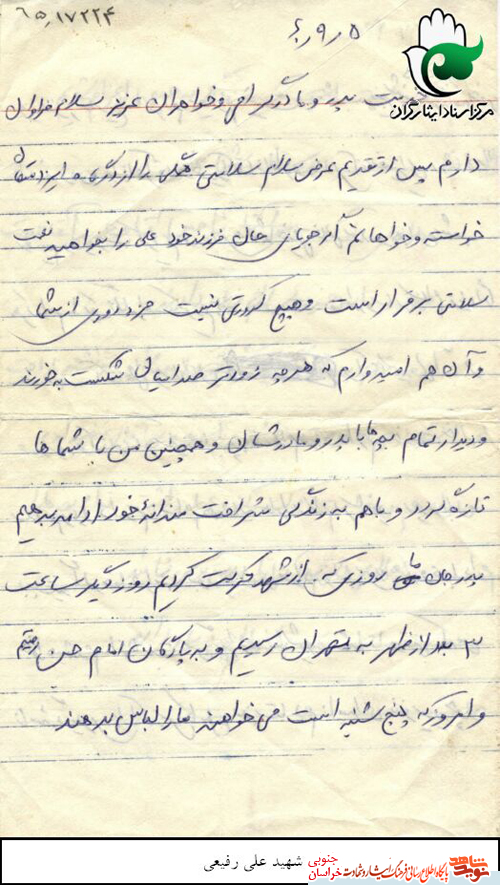 ۶۵٫۱۷۲۲۴
۶٫۹٫۵
مرکز اسناد ایثارگران
پدر و مادر و خواهران عزیز سلام فراوان
دارم پس از تقدیم عرض سلام سلامتی همگی را از درگاه ایزد
خواسته و خواهانم اگر جویای حال فرزند خود علی را بخواهید نعمت
سلامتی برقرار است و هیچ کدورتی نیست جز دوری از شما
و آن هم امیدوارم که هر چه زودتر صدامیان شکست بخورند
و دیدار تمام بچه‌ها با پدر و مادرشان و همچنین من با شما ها
تازه گردد و با هم به زندگی شرافت مندانهٔ خود ادامه بدهیم
پدر جان ما روزی که از مشهد حرکت کردیم روز دیگر ساعت
۳ بعد از ظهر به تهران رسیدیم و به پادگان امام حسن رفتیم
و امروز که پنج شنبه است می خواهند ما را لباس بدهند
شهید علی رفیعی
نوید شاهد
پایگاه اطلاع رسانی فرهنگ ایثار و شهادت خراسان جنوبی